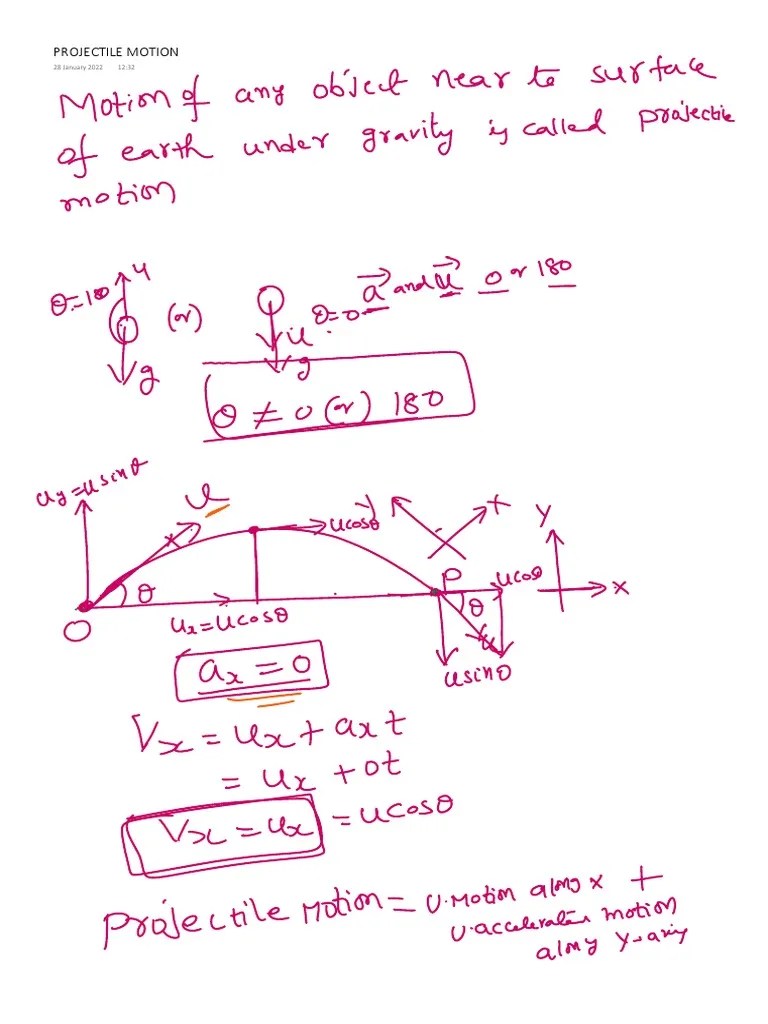 PROJECTILE MOTION
28 January 2022 12:32
Motion of any object near to surface
of earth under gravity is called projectile
motion
θ=180 u (or) θ=0 a and u 0 or 180
g u
g
θ ≠ 0 (or) 180
uy=usinθ u ucosθ Y
O θ ux=ucosθ P ucosθ θ x
u
usinθ
ax = 0
Vx = ux + axt
= ux + 0t
Vx = ux = ucosθ
Projectile Motion = U.Motion along x +
U.acceleration motion
along Y-axis